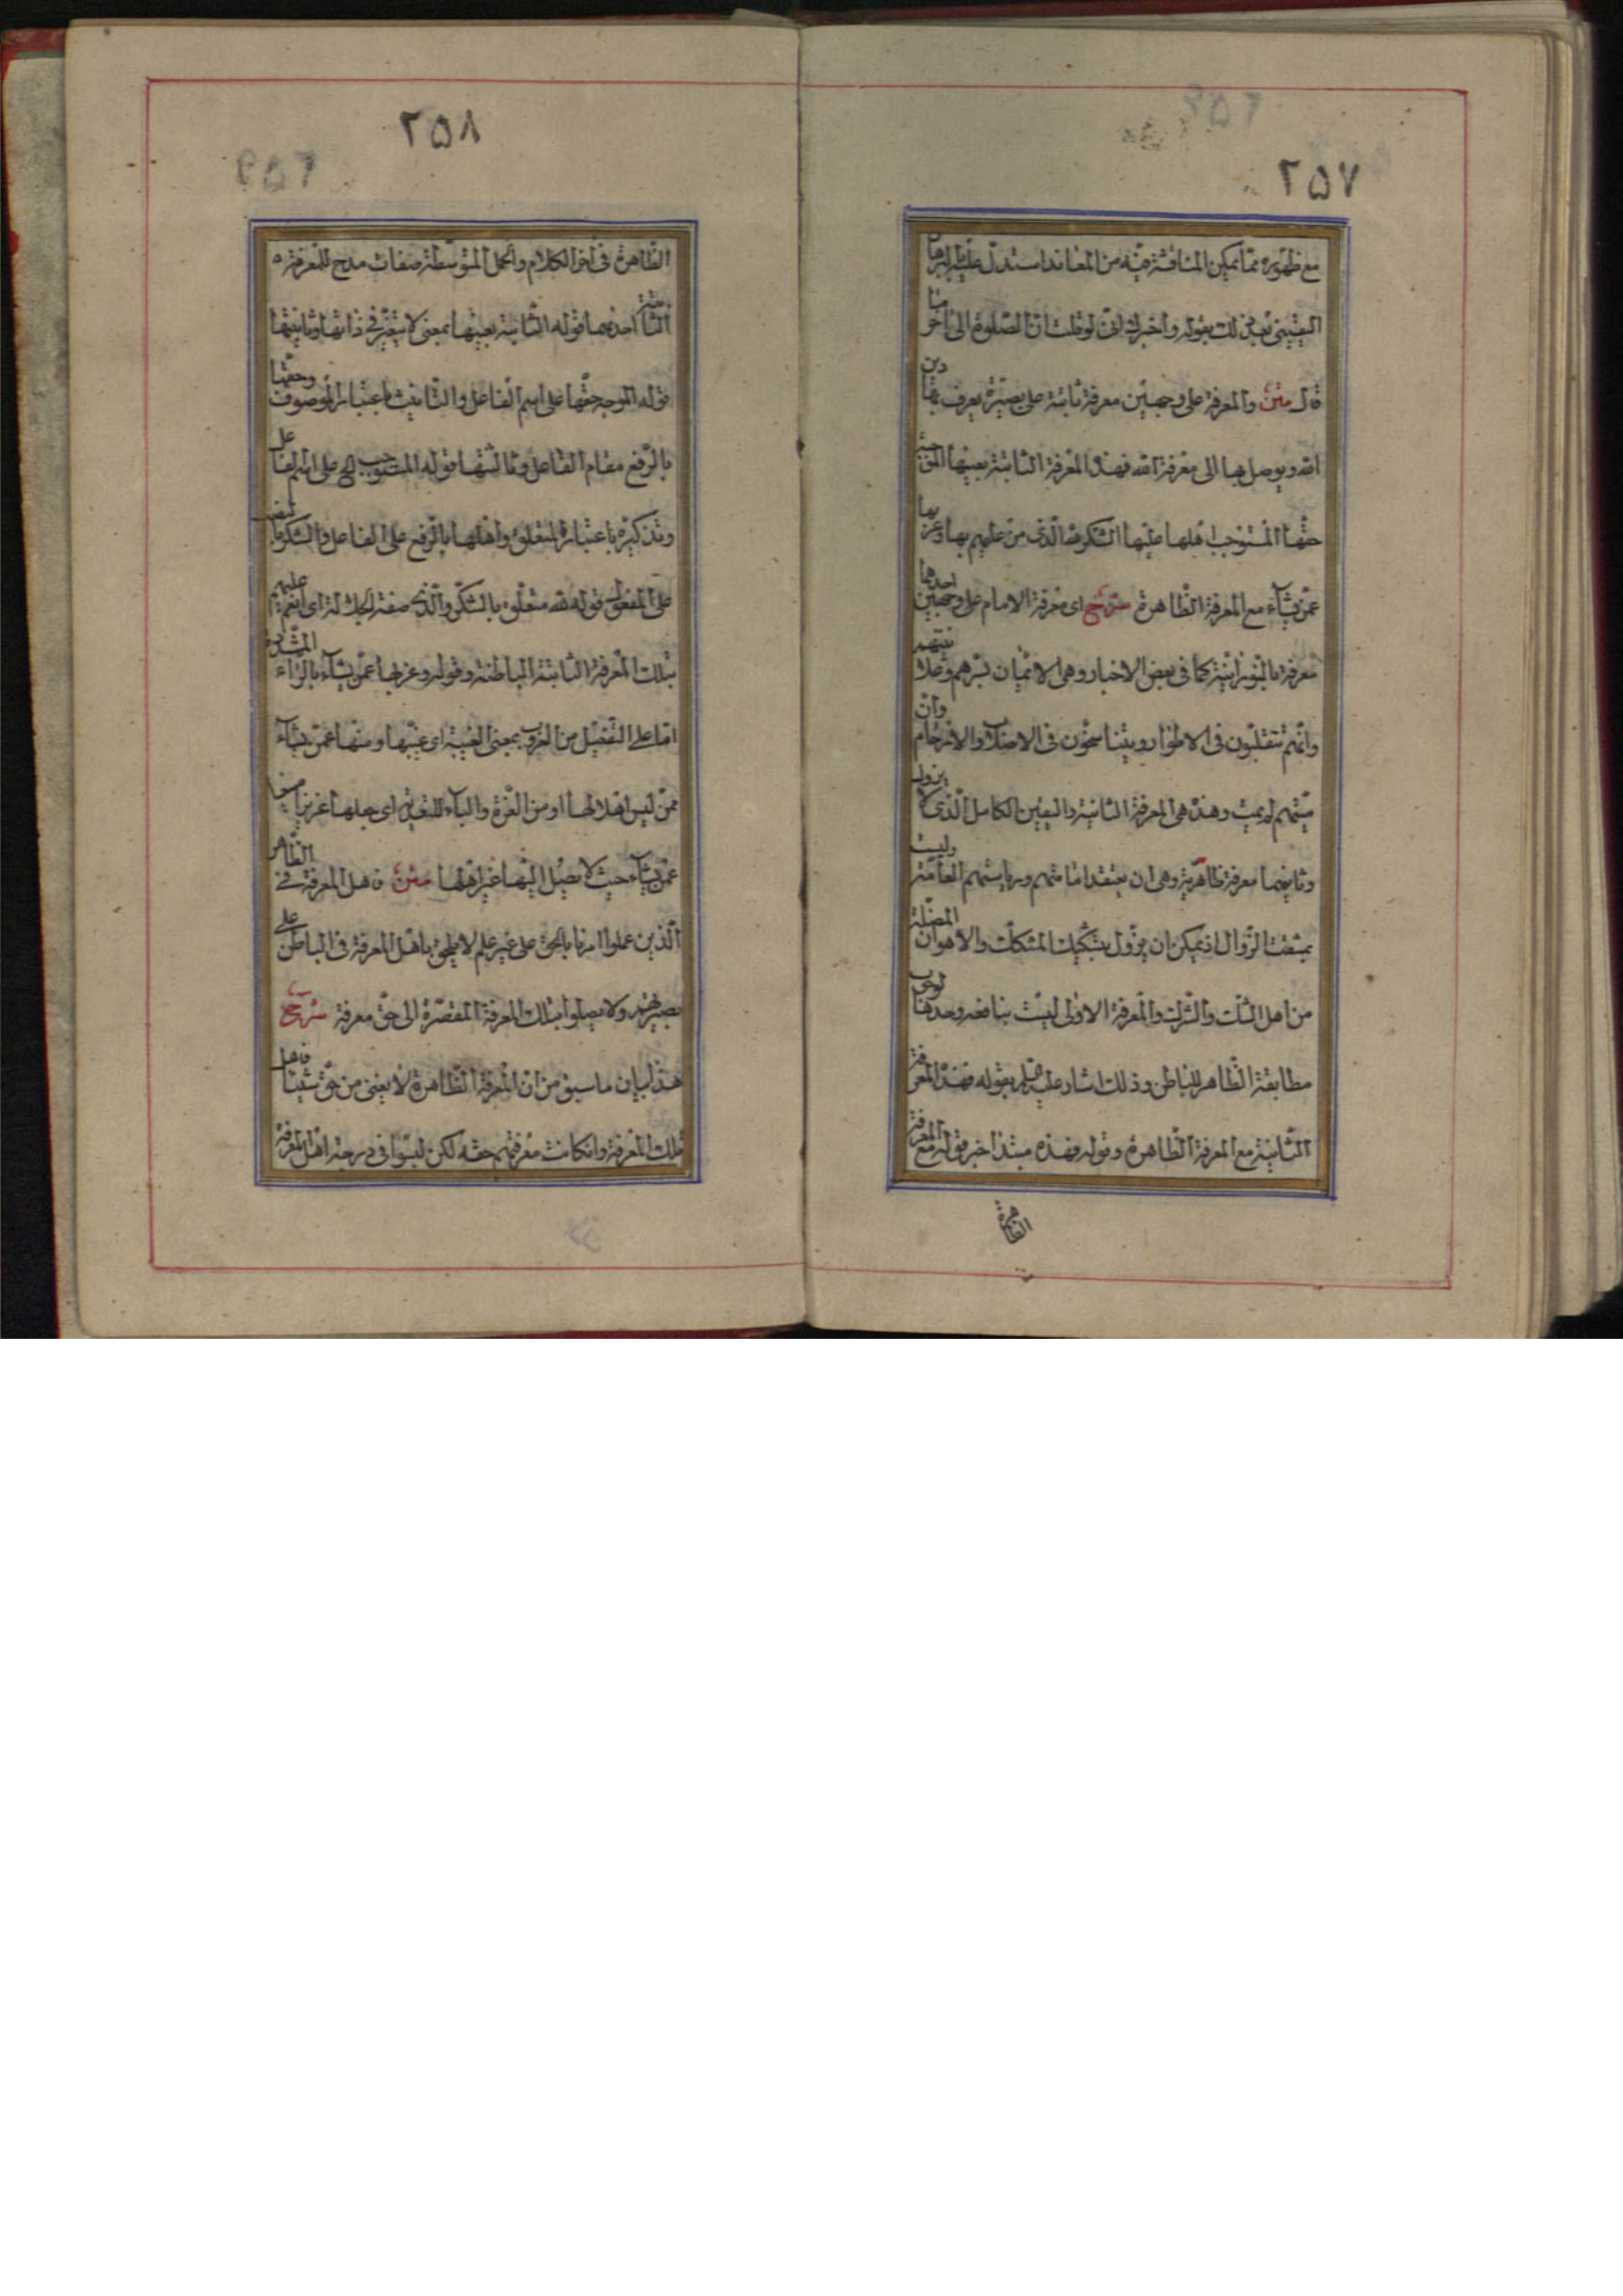 ٢٥٧
مع ظهوره مما يمكن المناقشة فيه من المعاند استدل عليه بالبرهان
اليقيني بعد ذلك بقوله واخبرك اني لو قلت ان الصلوة الى آخر ما
قال متن والمعرفة على وجهين معرفة ثابتة على بصيرة يعرف بها دين
الله ويوصل بها الى معرفة الله فهذه المعرفة الثابتة بعينها الموجبة
حقها المستوجب اهلها عليها الشكر لله الذي من عليهم بها وعزب بها
عمن يشآء مع المعرفة الظاهرة شرح اى معرفة الامام على وجهين احدهما
معرفة بالنورانية كما في بعض الاخبار وهى الايمان بسرهم وعلانيتهم
وانهم يتقلبون في الاطوار ويتناسخون في الاصلاب والارحام وان
ميتهم لم يمت وهذه هى المعرفة الثابتة واليقين الكامل الذى لا يزول
وثانيهما معرفة ظاهرية وهى ان يعتقد امامتهم ورياستهم العامة وليست
بممتنعة الزوال اذ يمكن ان يزول بتشكيك المشكك والاهوآء المضلة
من اهل الشك والشرك والمعرفة الاولى ليست بنافعة وحدها لوجوب
مطابقة الظاهر للباطن وذلك اشار عليه السلام بقوله فهذه المعرفة
الثابتة مع المعرفة الظاهرة وقوله فهذه مبتدا خبر قوله مع المعرفة
الظاهرة
٢٥٨
الظاهرة في آخر الكلام والجمل المتوسطة صفات مدح للمعرفة
الثابتة احدهما قوله الثابتة بعينها بمعنى لا يتغير في ذاتها وثانيتها
قوله الموجبه حقها على اسم الفاعل والتانيث باعتبار الموصوف وحقها
بالرفع مقام الفاعل وثالثتها قوله المستوجب الخ على اسم الفاعل
وتذكيره باعتبار المتعلق واهلها بالرفع على الفاعل والشكر بالنصب
على المفعول قوله لله متعلق بالشكر والذى صفة الجلالة اى انعم عليهم
بتلك المعرفة الثابتة الباطنة وقوله وعزب بها عمن يشآء بالزاء المشددة
اما على التفعيل من العزوب بمعنى الغيبة اى غيبها ومنها عمن يشآء
ممن ليس اهلا لها او من العزة والبآء للتعدية اى جعلها عزيزا
عمن يشآء حيث لا يصل اليها غير اهلها متن فاهل المعرفة في الظاهر
الذين عملوا امرنا بالحق على غير علم لا يلحق باهل المعرفة في الباطن على
بصيرتهم ولا يصلوا بتلك المعرفة المقصرة الى حق معرفة شرح
هذا بيان ما سبق من ان المعرفة الظاهرة لا يغنى من حق شيئا فاهل
تلك المعرفة وانكانت معرفتهم حقه لكن ليسوا في درجة اهل المعرفة